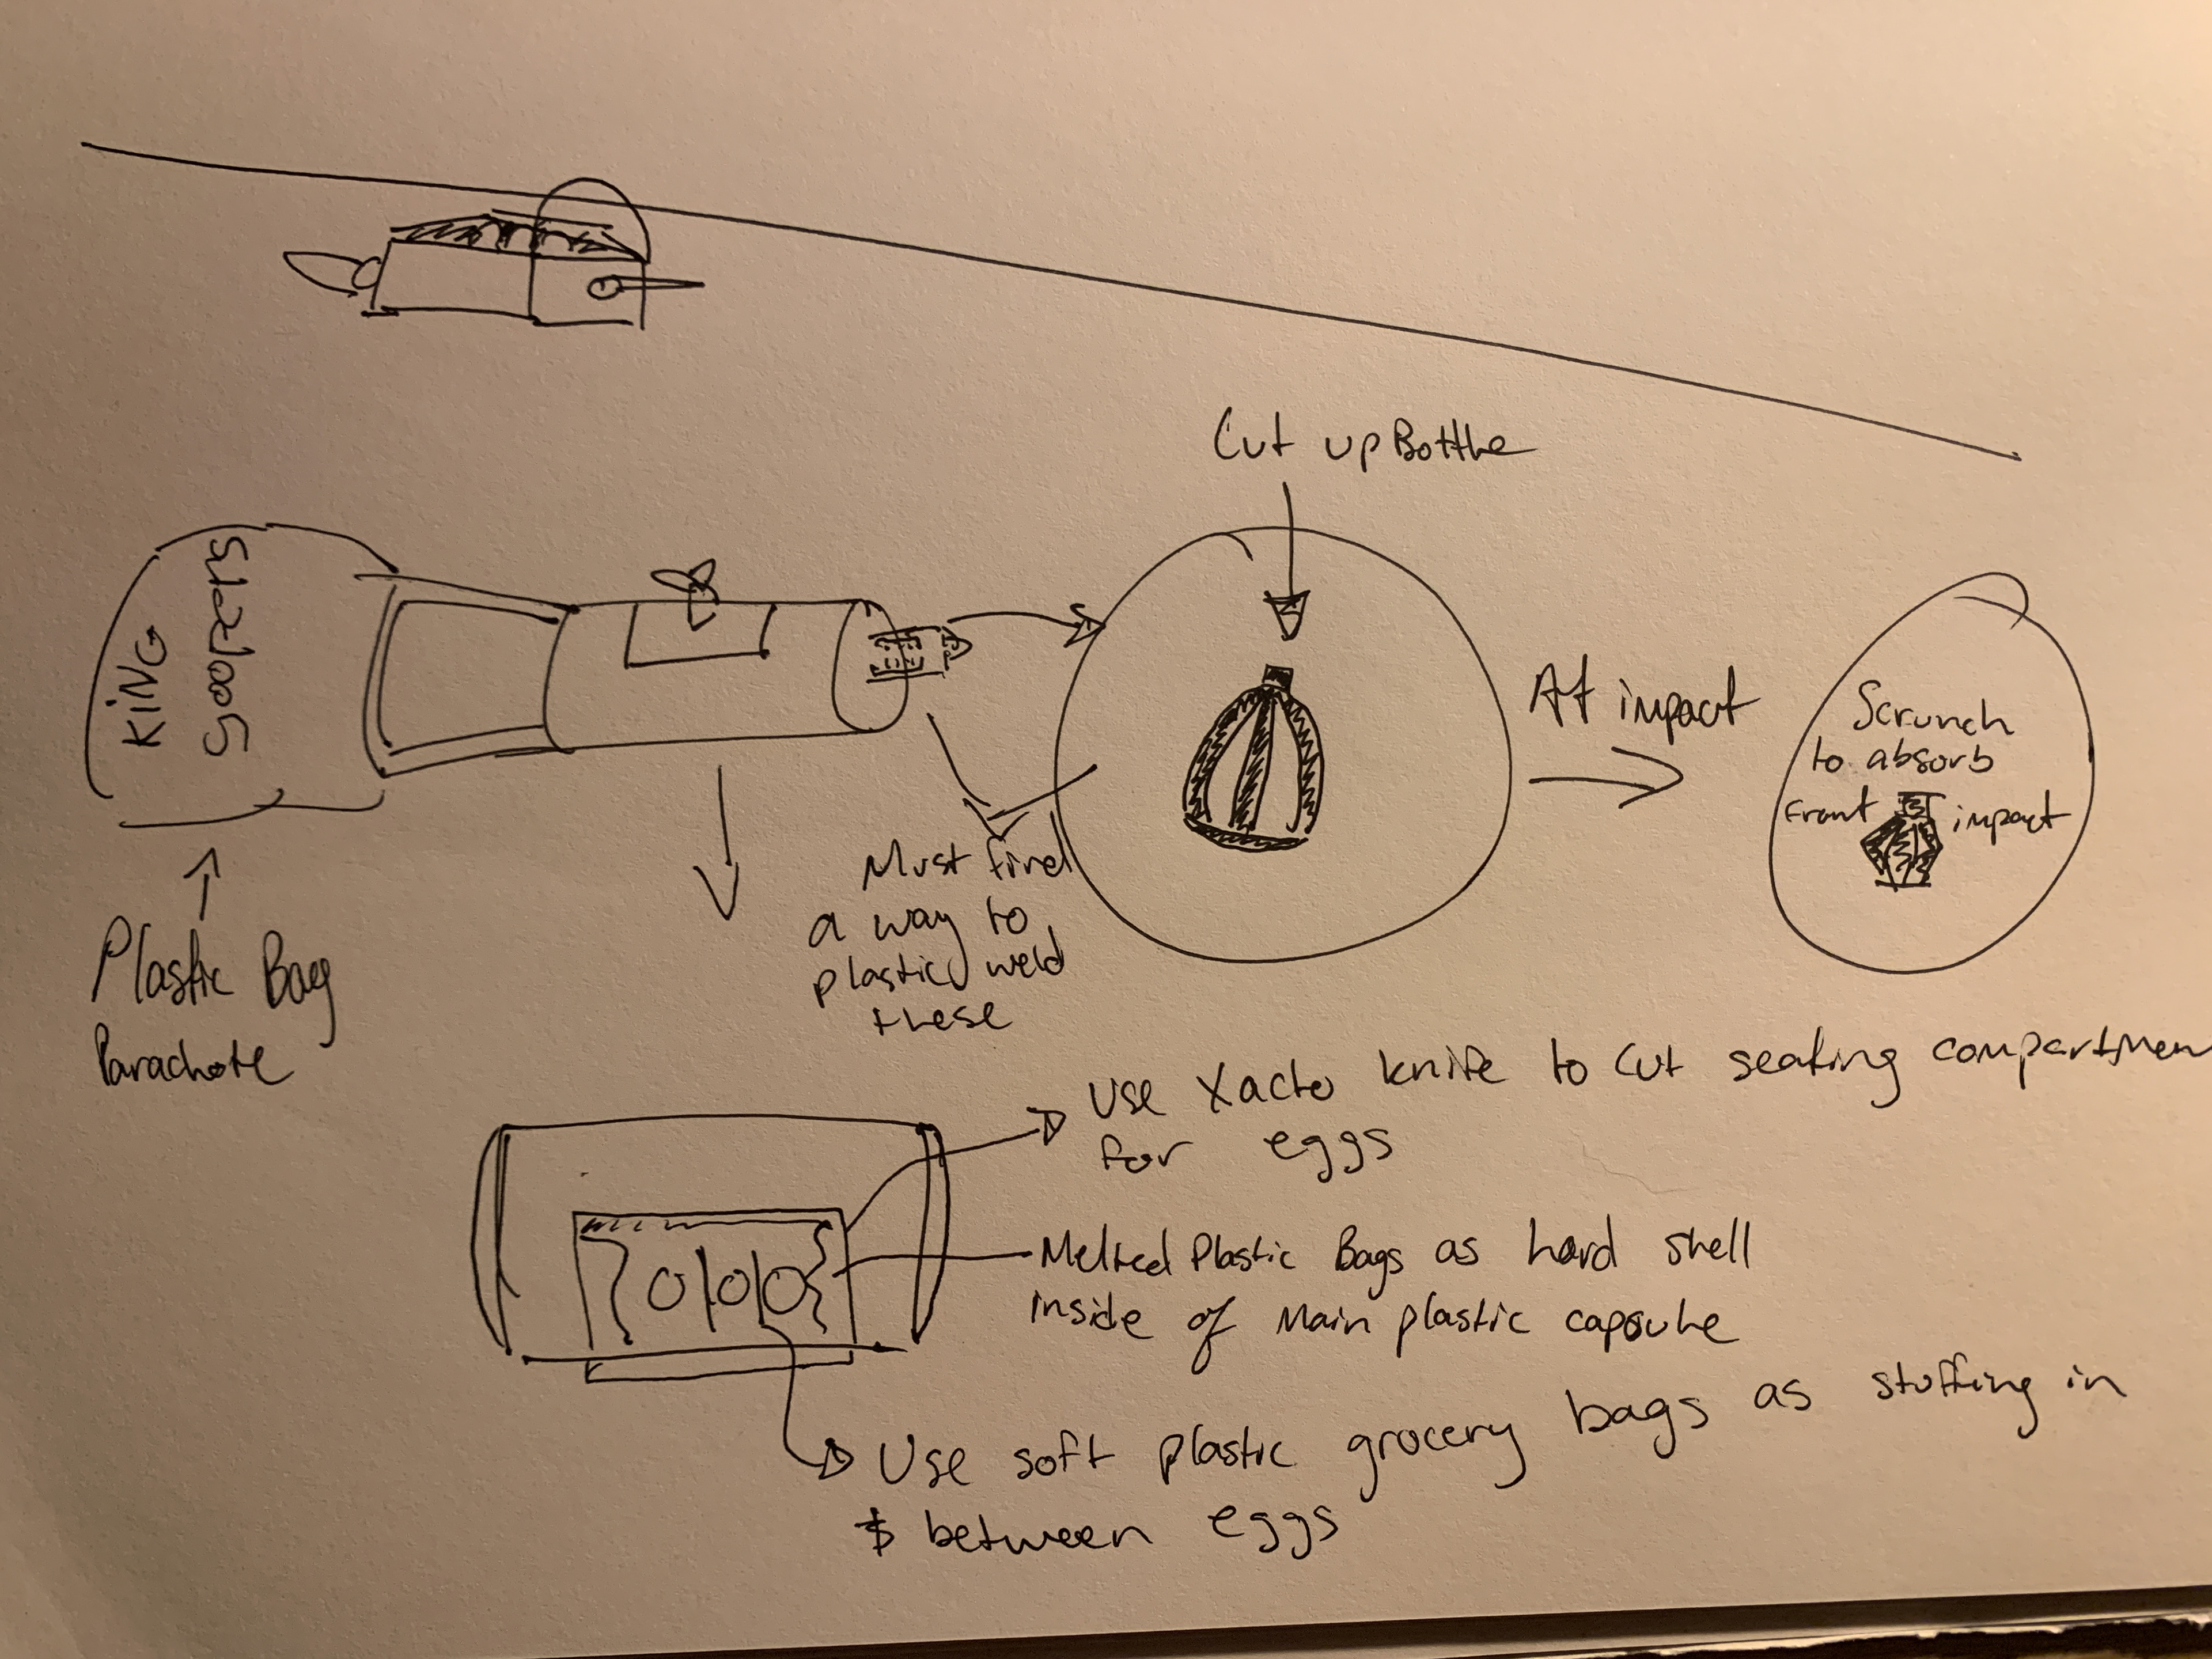 Cut upBottle
KING
Soopers
At impact
Scrunch
to absorb
Front impact
Must find
a way to
plastic weld
these
Plastic Bag
Parachute
Use Xacto knife to Cut seating compartmen
for eggs
Melted Plastic Bags as hard shell
inside of Main plastic capsule
Use soft plastic grocery bags as stuffing in
& between eggs